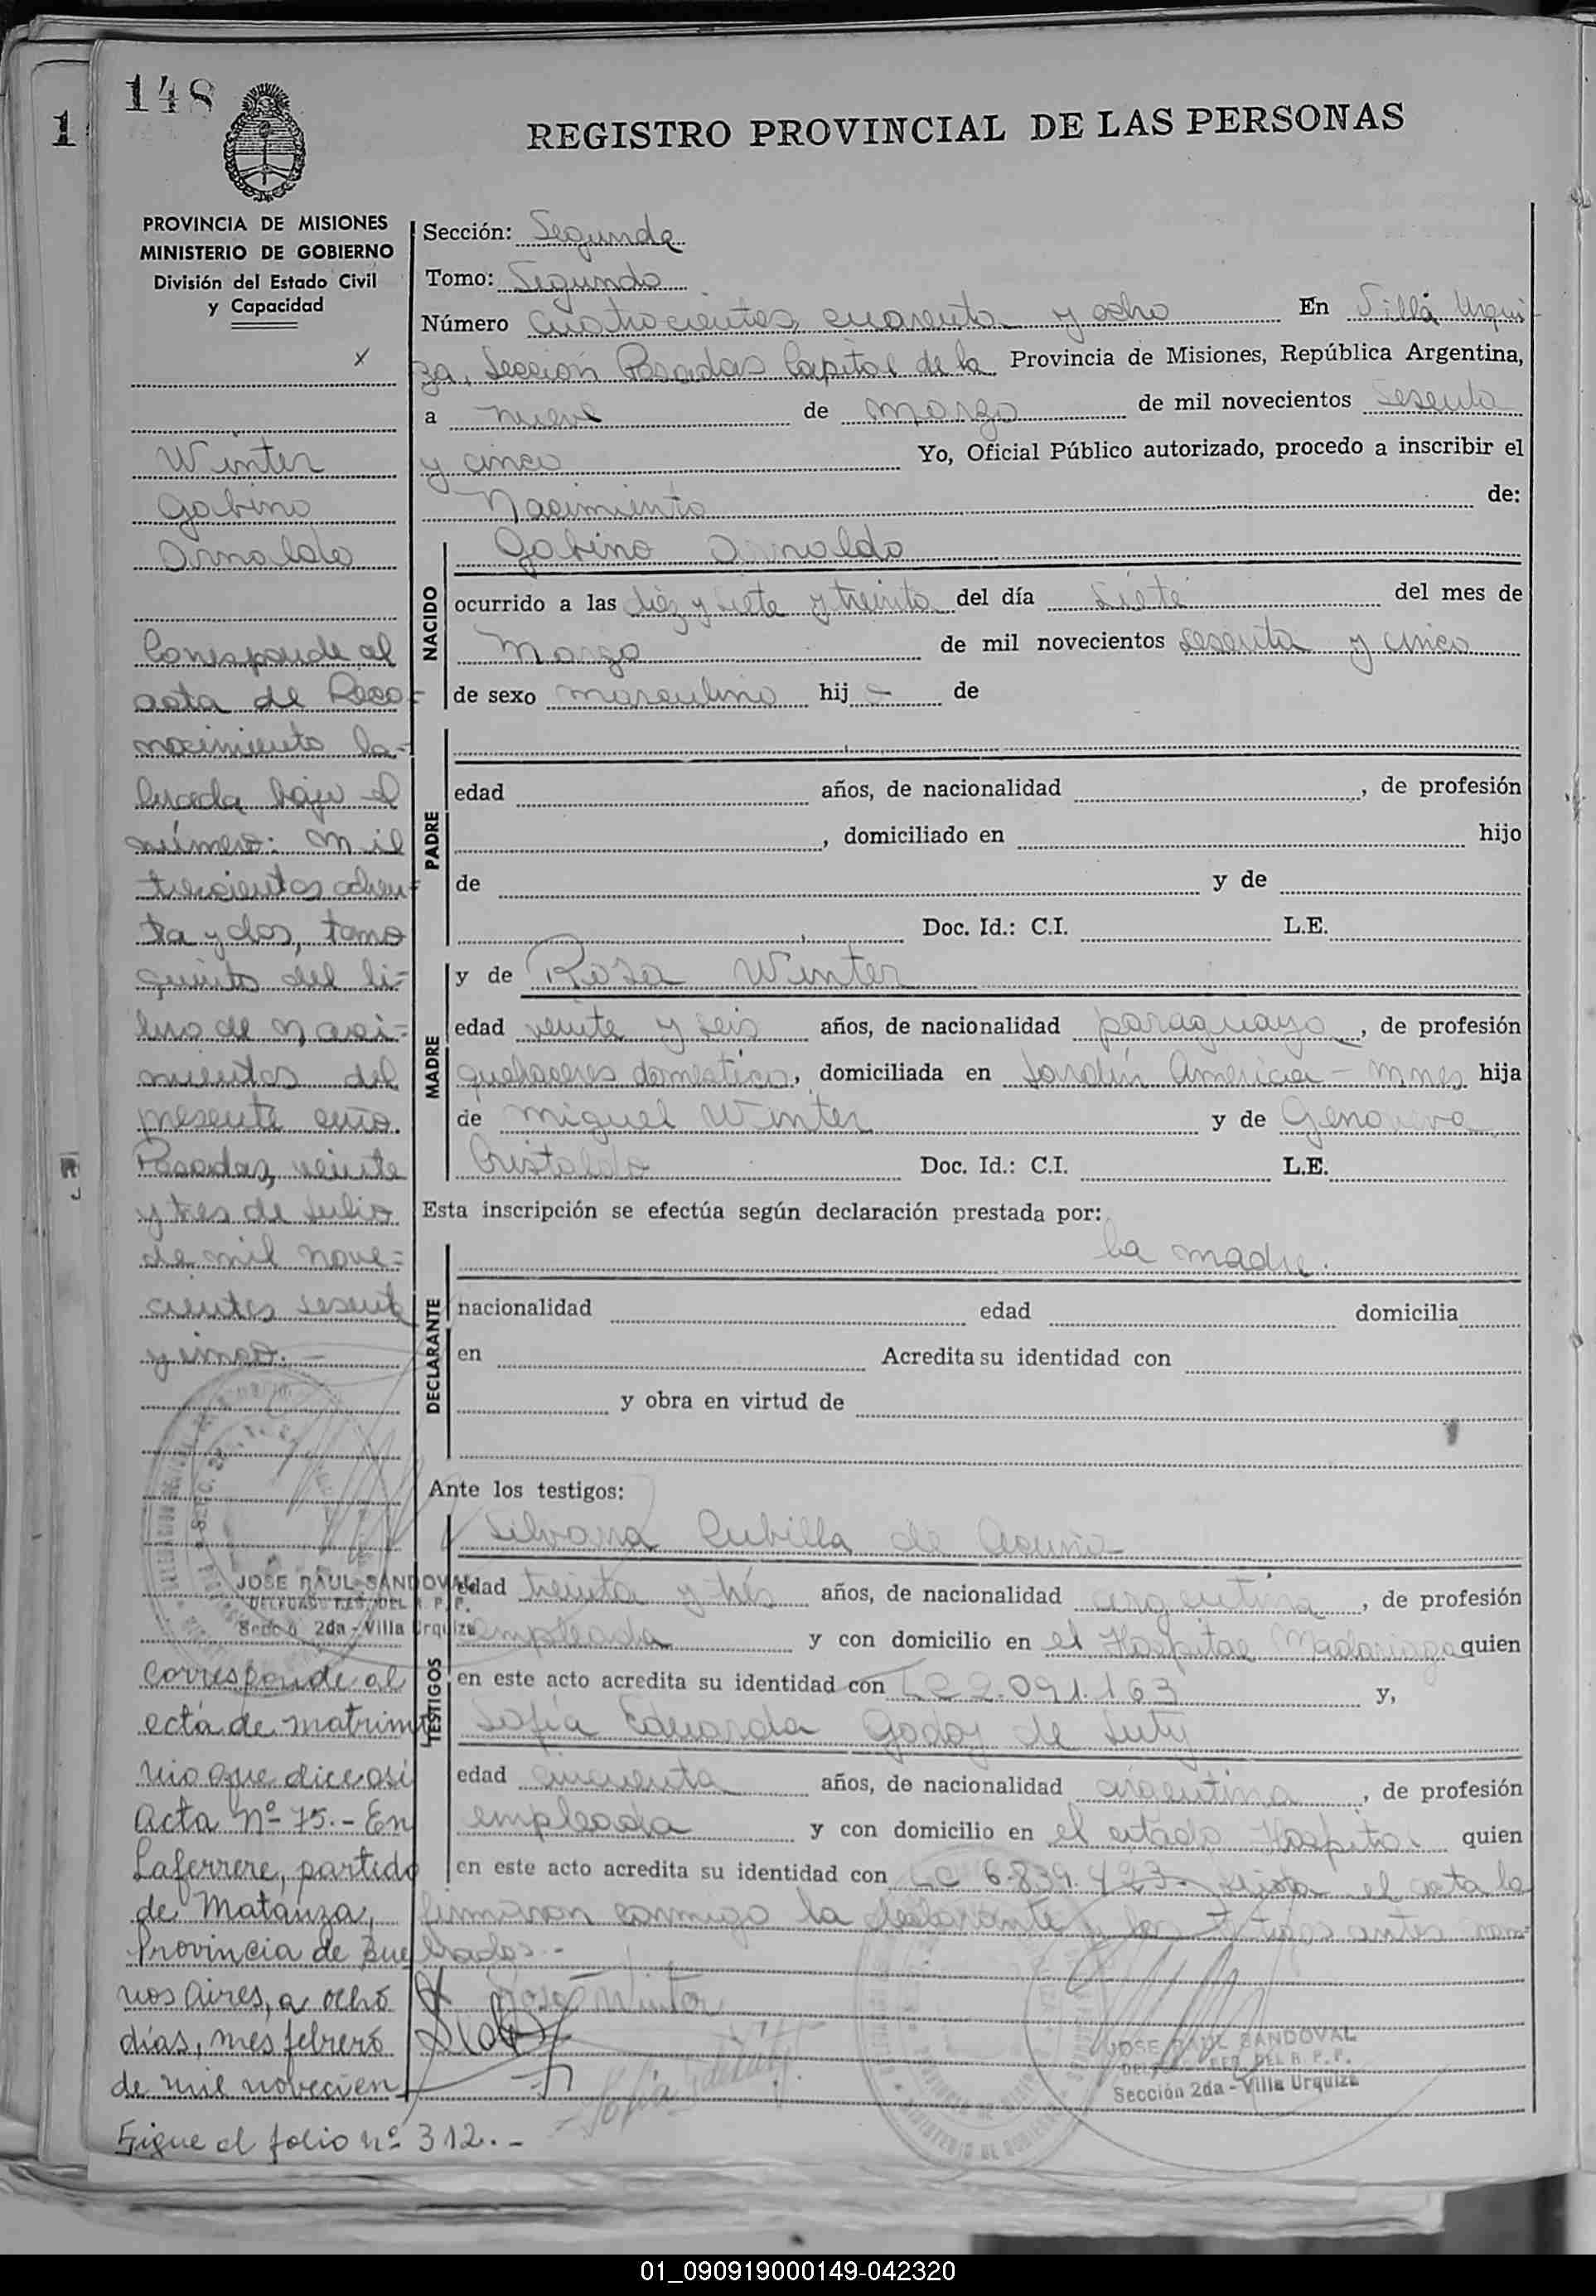 148
REGISTRO PROVINCIAL DE LAS PERSONAS
PROVINCIA DE MISIONES
MINISTERIO DE GOBIERNO
División del Estado Civil
y Capacidad
x
Winter
Gabino
Arnaldo
Corresponde al
acta de Reco-
nocimiento la-
brada bajo el
número: Mil
trescientos ochen-
ta y dos, tomo
quinto del li-
bro de Naci-
mientos del
presente año.
Posadas, veinte
y tres de Julio
de mil nove-
cientos sesenta
y cinco.-
JOSE RAUL SANDOVAL
DELEGADO TES. DEL R. P. P.
Sección 2da - Villa Urquiza
Corresponde al
acta de matrimo
nio que dice así
Acta Nº 75.- En
Laferrere, partido
de Matanza,
Provincia de Bue
nos Aires, a ocho
días, mes febrero
de mil novecien
Sigue al folio nº 312.-
Sección: Segunda
Tomo: Segundo
Número Cuatrocientos cuarenta y ocho En Villa Urqui
za, Sección Posadas Capital de la Provincia de Misiones, República Argentina,
a nueve de Marzo de mil novecientos sesenta
y cinco Yo, Oficial Público autorizado, procedo a inscribir el
Nacimiento de:
NACIDO
Gabino Arnaldo
ocurrido a las diez y siete y treinta del día siete del mes de
Marzo de mil novecientos sesenta y cinco
de sexo masculino hij o de
PADRE
edad años, de nacionalidad , de profesión
, domiciliado en hijo
de y de
Doc. Id.: C.I. L.E.
MADRE
y de Rosa Winter
edad veinte y seis años, de nacionalidad paraguaya, de profesión
quehaceres domésticos, domiciliada en Jardín America - Mnes hija
de Miguel Winter y de Genoveva
Cristaldo Doc. Id.: C.I. L.E.
Esta inscripción se efectúa según declaración prestada por:
DECLARANTE
la madre.
nacionalidad edad domicilia
en Acredita su identidad con
y obra en virtud de
Ante los testigos:
TESTIGOS
Silvana Cubilla de Acuña
edad treinta y tres años, de nacionalidad argentina, de profesión
empleada y con domicilio en el Hospital Madariaga quien
en este acto acredita su identidad con LC 2.091.163 y,
Sofía Eduarda Godoy de
edad cincuenta años, de nacionalidad argentina, de profesión
empleada y con domicilio en el citado Hospital quien
en este acto acredita su identidad con LC 6.839.423. Leída el acta la
firmaron conmigo la declarante y los testigos antes nom-
brados.-
Rosa Winter
JOSE RAUL SANDOVAL
DEL R. P. P.
Sección 2da - Villa Urquiza
01_090919000149-042320